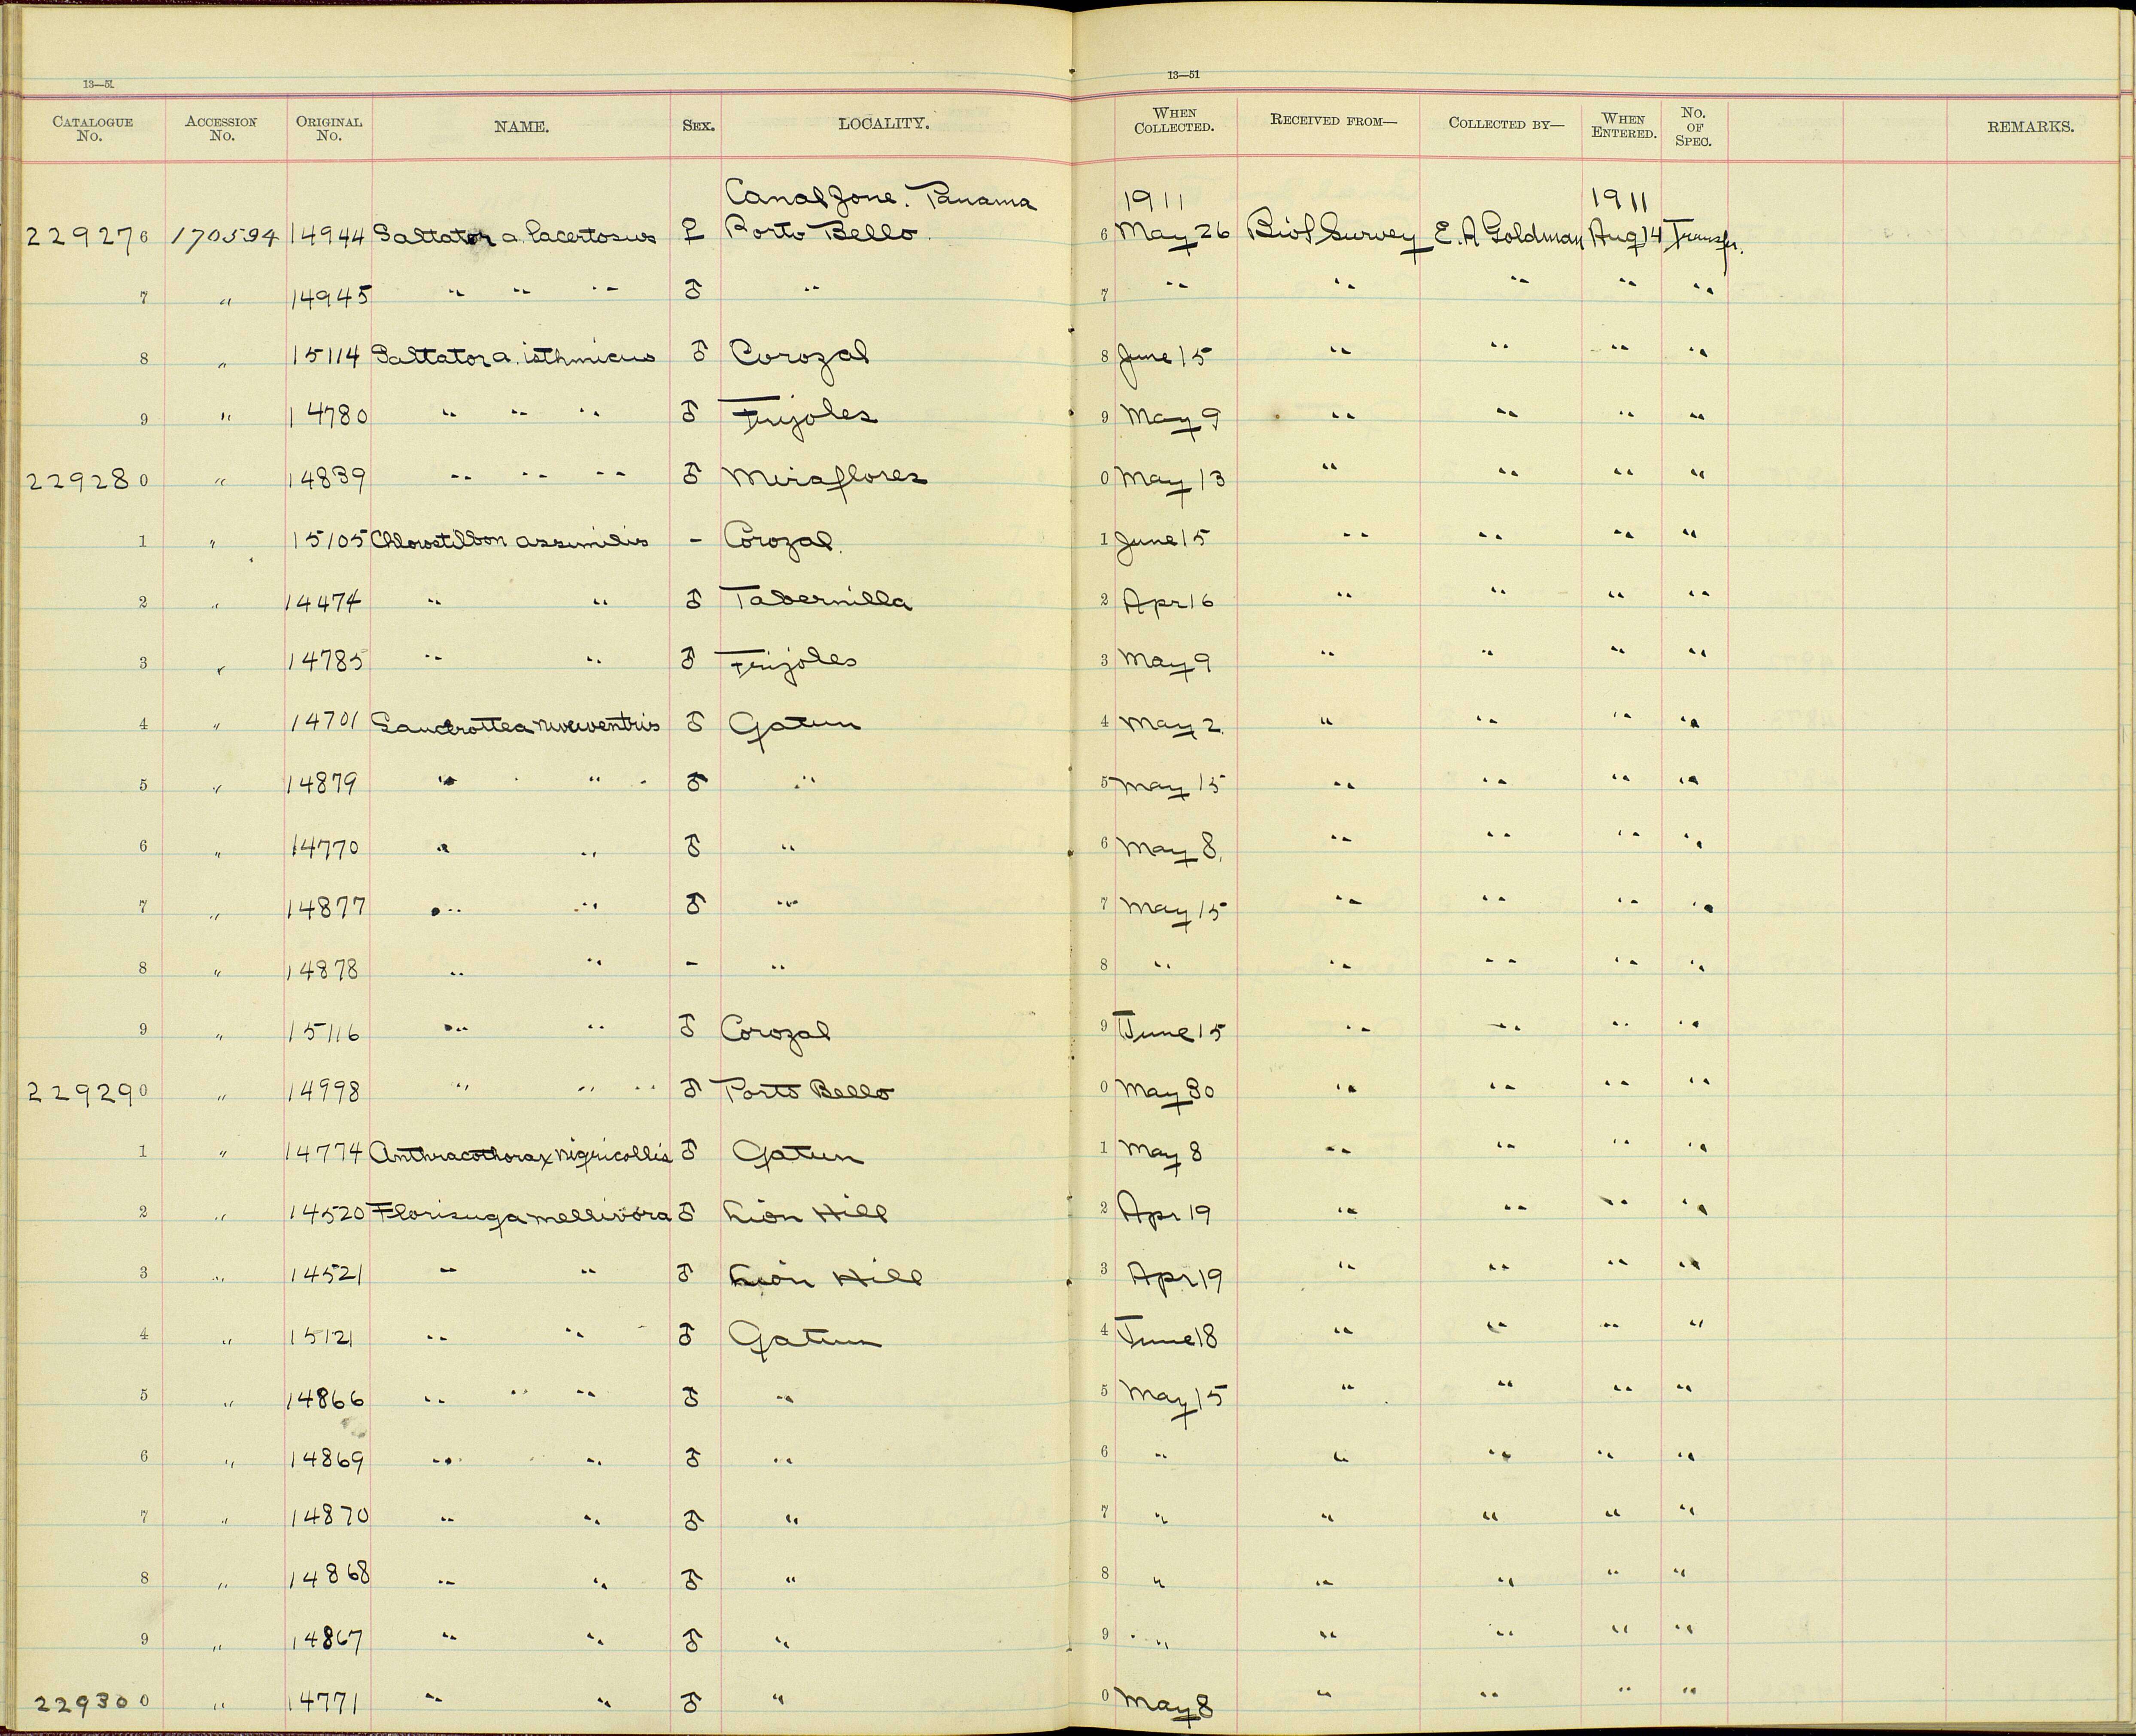 13—51 13—51
CATALOGUE No. ACCESSION No. ORIGINAL No. NAME. SEX. LOCALITY. WHEN COLLECTED. RECEIVED FROM— COLLECTED BY— WHEN ENTERED. No. OF SPEC. REMARKS.
Canal Zone. Panama 1911 1911
229276 170594 14944 Saltator a. lacertosus ♀ Porto Bello. 6 May 26 Biol Survey E. A Goldman Aug 14 Transfr.
7 " 14945 " " " ♂ " 7 " " " " "
8 " 15114 Saltator a. isthmicus ♂ Corozal 8 June 15 " " " "
9 " 14780 " " " ♂ Frijoles 9 May 9 " " " "
229280 " 14839 " " " ♂ Miraflores 0 May 13 " " " "
1 " 15105 Chlorostilbon assimilis - Corozal. 1 June 15 " " " "
2 " 14474 " " ♂ Tabernilla 2 Apr 16 " " " "
3 " 14785 " " ♂ Frijoles 3 May 9 " " " "
4 " 14701 niveoventris ♂ Gatun 4 May 2. " " " "
5 " 14879 " " ♂ " 5 May 15 " " " "
6 " 14770 " " ♂ " 6 May 8. " " " "
7 " 14877 " " ♂ " 7 May 15 " " " "
8 " 14878 " " - " 8 " " " " "
9 " 15116 " " ♂ Corozal 9 June 15 " " " "
229290 " 14998 " " " ♂ Porto Bello 0 May 30 " " " "
1 " 14774 Anthracothorax nigricollis ♂ Gatun 1 May 8 " " " "
2 " 14520 Florisuga mellivora ♂ Lion Hill 2 Apr 19 " " " "
3 " 14521 " " ♂ Lion Hill 3 Apr 19 " " " "
4 " 15121 " " ♂ Gatun 4 June 18 " " " "
5 " 14866 " " " ♂ " 5 May 15 " " " "
6 " 14869 " " ♂ " 6 " " " " "
7 " 14870 " " ♂ " 7 " " " " "
8 " 14868 " " ♂ " 8 " " " " "
9 " 14867 " " ♂ " 9 " " " " "
229300 " 14771 " " ♂ " 0 May 8 " " " "